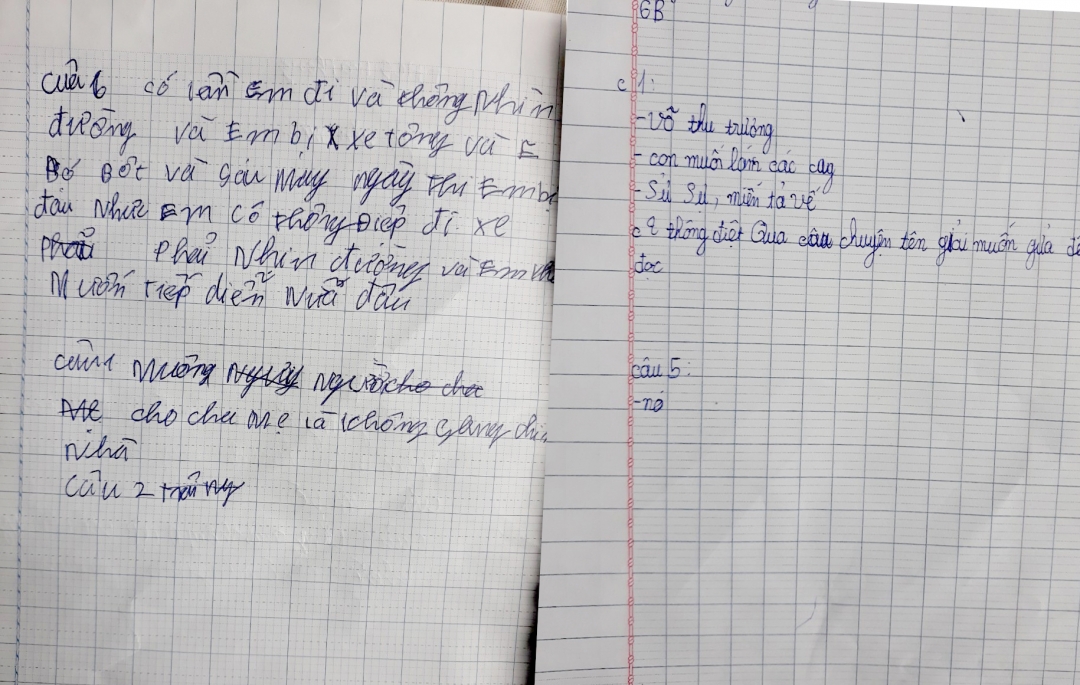 câu 6 có lần Em đi và không Nhìn
đường và Em bị xe tông và E
Bó Bột và gảu Mấy ngày thì Em bị
đau Nhức Em có thông Điệp đi xe
phải Nhìn đường và Em
Muốn tiếp diễn Nữa đâu
câu 1
cho cha Mẹ là không gang
Nhà
Câu 2
6B
c 1:
-Võ thu trường
- con muốn làm các cay
- Sử Sự, miễn tả vẽ
c 2 thông điệt Qua câu chuyện tên giải muốn gửa đế
đọc
câu 5:
-nó